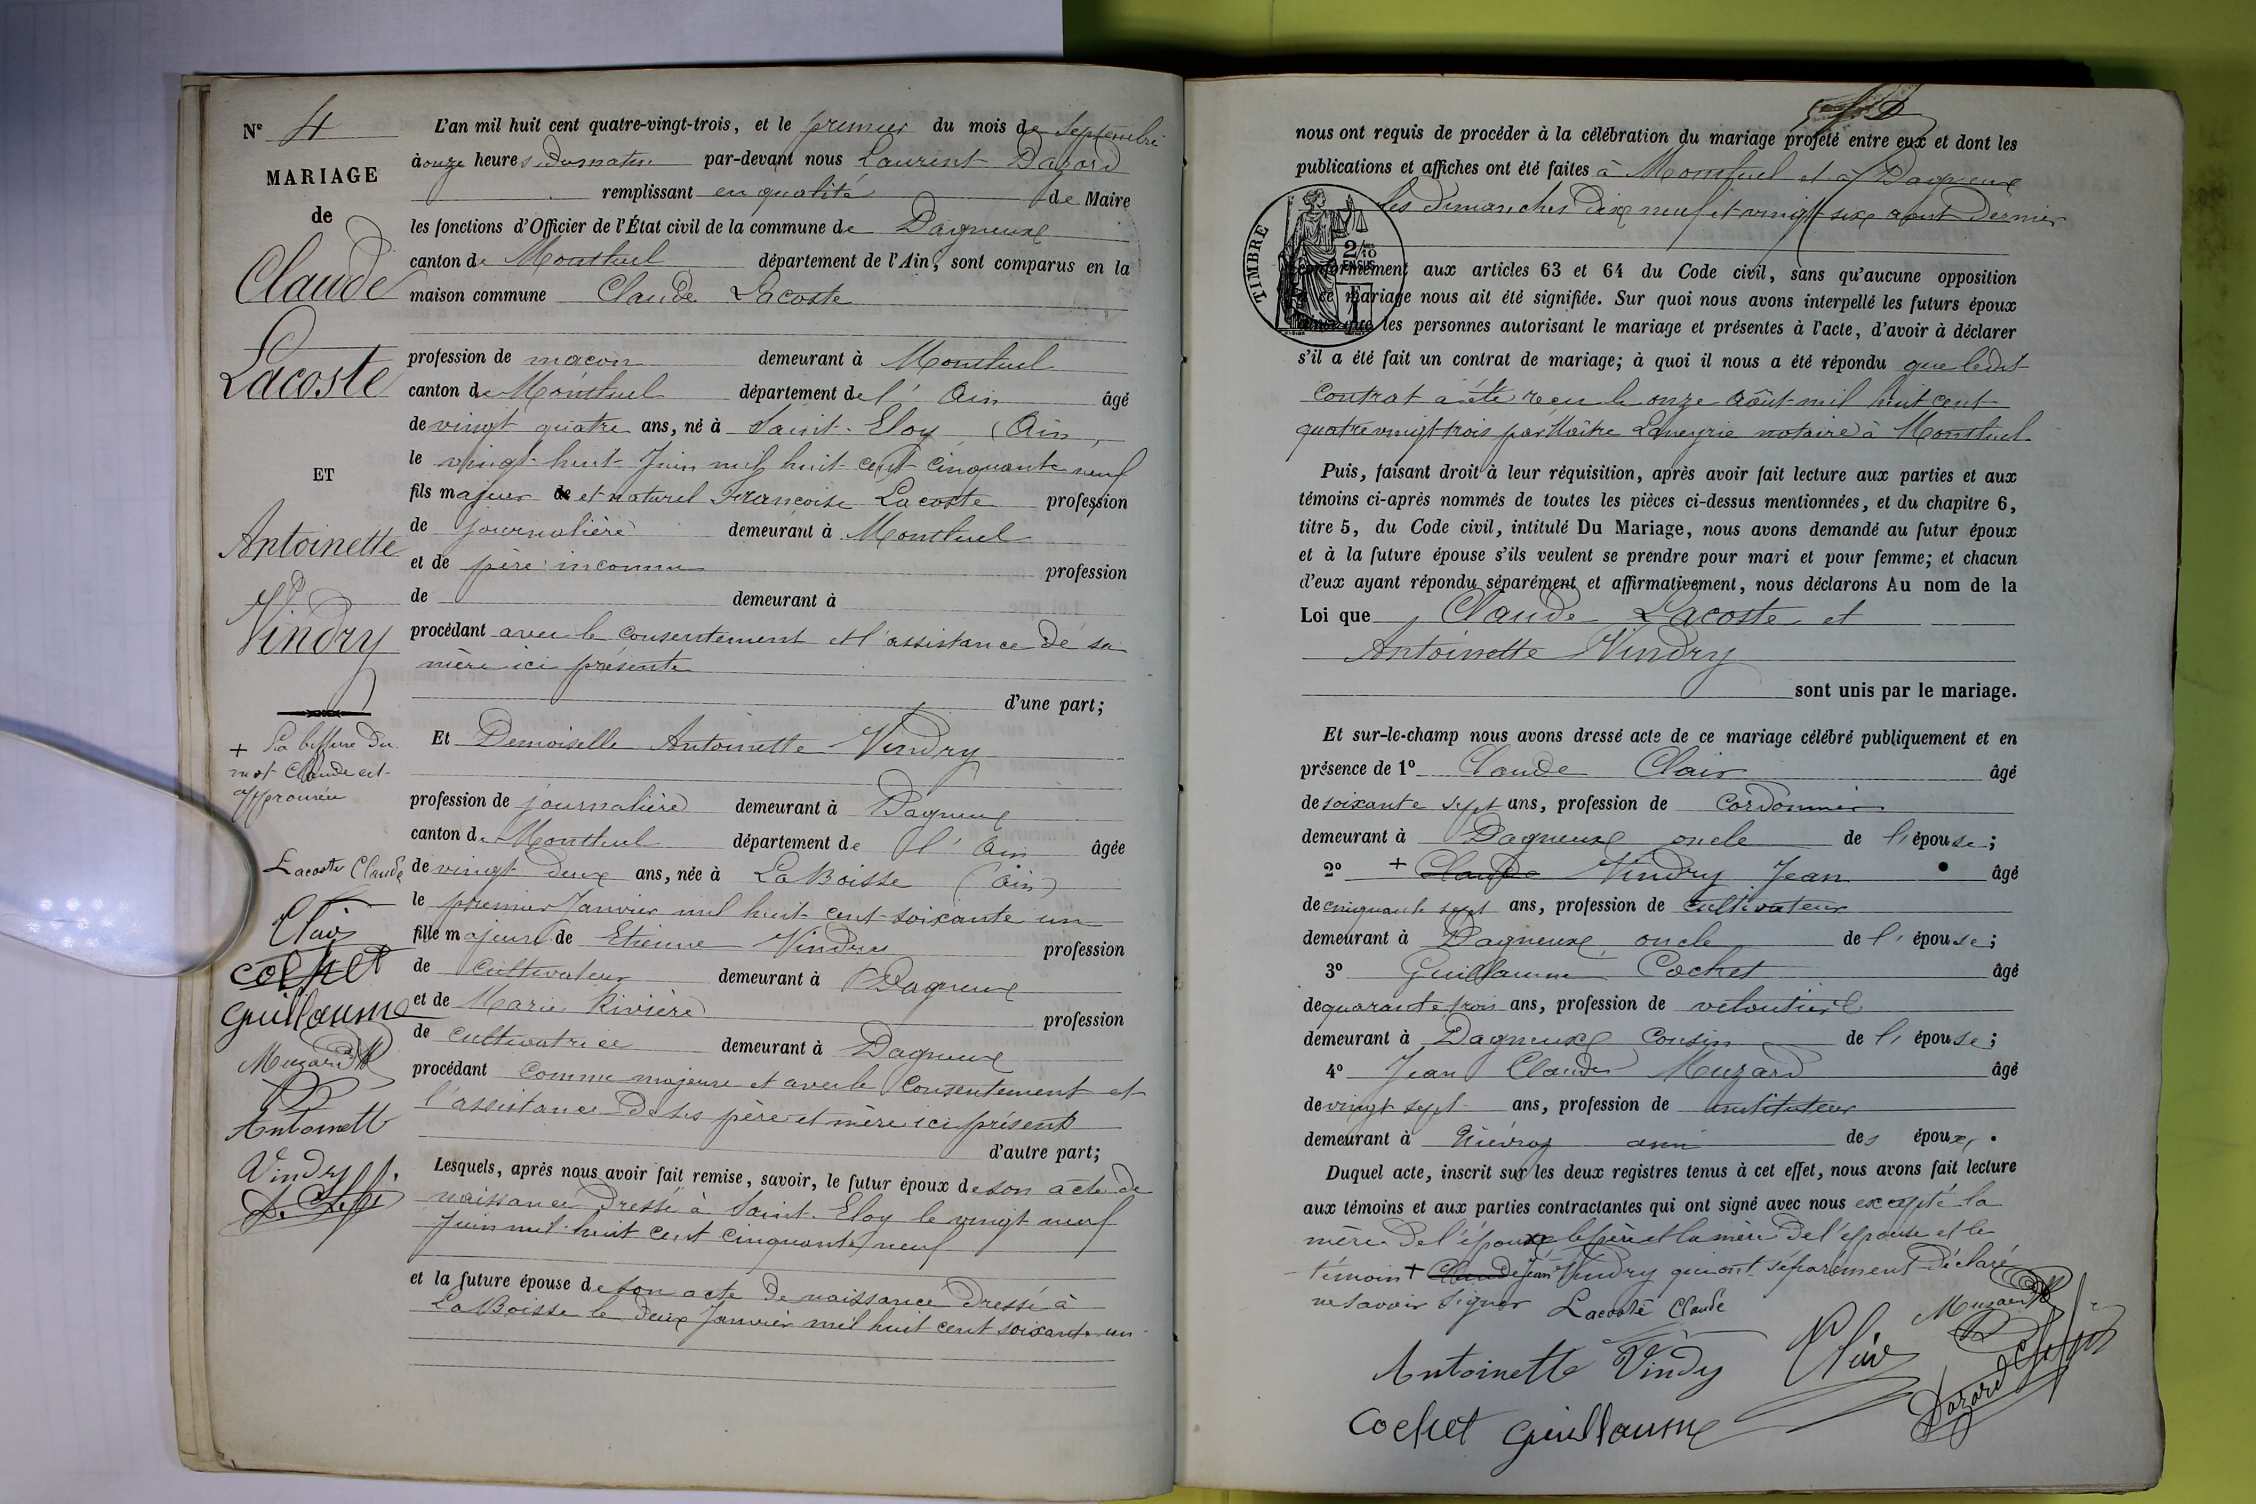 N° 4
MARIAGE
de
Claude
Lacoste
ET
Antoinette
Vindry
+ La biffure du
mot Claude est
approuvée
Lacoste Claude
Clair
Cochet
Guillaume
Muzard
Antoinette
Vindry
L'an mil huit cent quatre-vingt-trois, et le premier du mois de Septembre
à onze heures du matin par-devant nous Laurent Dazord
remplissant en qualité de Maire
les fonctions d'Officier de l'État civil de la commune de Dagneux
canton de Montluel département de l'Ain, sont comparus en la
maison commune Claude Lacoste
profession de maçon demeurant à Montluel
canton de Montluel département de l'Ain âgé
de vingt quatre ans, né à Saint-Eloy (Ain)
le vingt-huit Juin mil huit cent cinquante neuf
fils majeur de et naturel Françoise Lacoste profession
de journalière demeurant à Montluel
et de père inconnu profession
de demeurant à
procédant avec le consentement et l'assistance de sa
mère ici présente
d'une part;
Et Demoiselle Antoinette Vindry
profession de journalière demeurant à Dagneux
canton de Montluel département de l'Ain âgée
de vingt deux ans, née à La Boisse (Ain)
le premier Janvier mil huit cent soixante un
fille majeure de Etienne Vindry profession
de cultivateur demeurant à Dagneux
et de Marie Rivière profession
de cultivatrice demeurant à Dagneux
procédant comme majeure et avec le consentement et
l'assistance de ses père et mère ici présents
d'autre part;
Lesquels, après nous avoir fait remise, savoir, le futur époux de son acte de
naissance dressé à Saint-Eloy le vingt neuf
Juin mil huit cent cinquante neuf
et la future épouse de son acte de naissance dressé à
La Boisse le deux Janvier mil huit cent soixante un
nous ont requis de procéder à la célébration du mariage projeté entre eux et dont les
publications et affiches ont été faites à Montluel et à Dagneux
les dimanches dix neuf et vingt six août dernier
TIMBRE
conformément aux articles 63 et 64 du Code civil, sans qu'aucune opposition
à ce mariage nous ait été signifiée. Sur quoi nous avons interpellé les futurs époux
ainsi que les personnes autorisant le mariage et présentes à l'acte, d'avoir à déclarer
s'il a été fait un contrat de mariage; à quoi il nous a été répondu que ledit
contrat a été reçu le onze août mil huit cent
quatre vingt trois par Maître Laneyrie notaire à Montluel
Puis, faisant droit à leur réquisition, après avoir fait lecture aux parties et aux
témoins ci-après nommés de toutes les pièces ci-dessus mentionnées, et du chapitre 6,
titre 5, du Code civil, intitulé Du Mariage, nous avons demandé au futur époux
et à la future épouse s'ils veulent se prendre pour mari et pour femme; et chacun
d'eux ayant répondu séparément et affirmativement, nous déclarons Au nom de la
Loi que Claude Lacoste et
Antoinette Vindry
sont unis par le mariage.
Et sur-le-champ nous avons dressé acte de ce mariage célébré publiquement et en
présence de 1° Claude Clair âgé
de soixante sept ans, profession de cordonnier
demeurant à Dagneux oncle de l'épouse;
2° + Claude Vindry Jean âgé
de cinquante sept ans, profession de cultivateur
demeurant à Dagneux oncle de l'épouse;
3° Guillaume Cochet âgé
de quarante trois ans, profession de veloutier
demeurant à Dagneux cousin de l'épouse;
4° Jean Claude Muzard âgé
de vingt sept ans, profession de instituteur
demeurant à Niévroz ami des époux.
Duquel acte, inscrit sur les deux registres tenus à cet effet, nous avons fait lecture
aux témoins et aux parties contractantes qui ont signé avec nous excepté la
mère de l'époux le père et la mère de l'épouse et le
témoin + Claude Jean Vindry qui ont séparément déclaré
ne savoir signer Lacoste Claude
Muzard
Antoinette Vindy Clair
Dazord
Cochet Guillaume